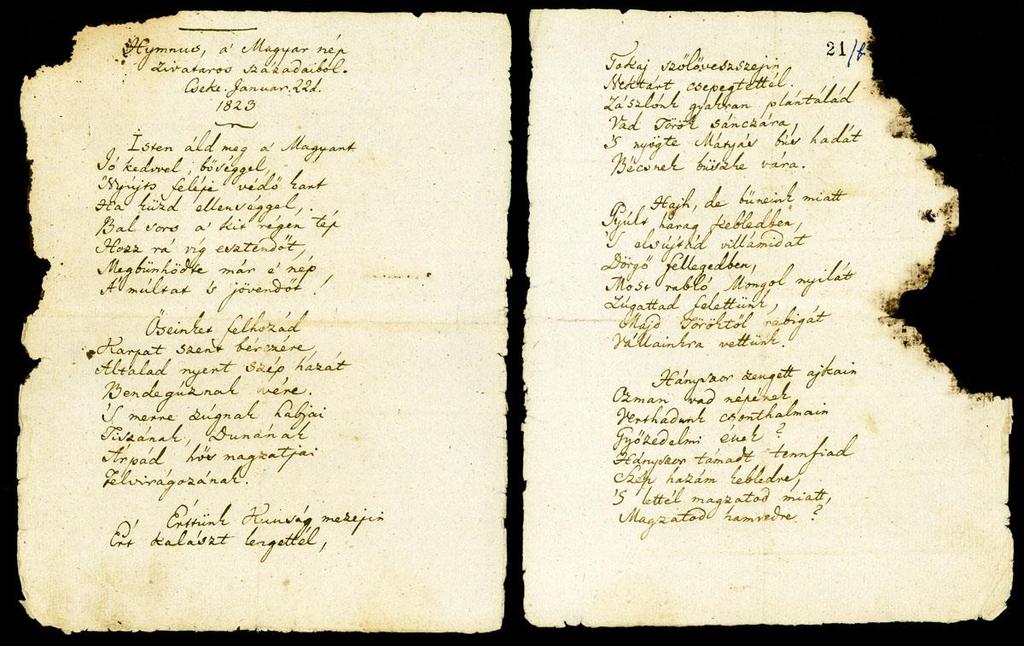 Hymnus, a' Magyar nép
zivataros századaiból.
Cseke. Januar. 22d.
1823
Isten áld meg a' Magyart
Jó kedvvel, bőséggel,
Nyújts feléje védő kart
Ha küzd ellenséggel,
Bal sors a' kit régen tép
Hozz rá víg esztendőt,
Megbűnhödte már e' nép
A' múltat 's jövendőt!
Őseinket felhozád
Kárpát szent bérczére,
Általad nyert szép hazát
Bendegúznak vére.
'S merre zúgnak habjai
Tiszának, Dunának
Árpád hős magzatjai
Felvirágozának.
Értünk Kunság mezején
Ért kalászt lengettél,
21/b
Tokaj szőlővesszejin
Nektárt csepegtettél.
Zászlónk gyakran plántálád
Vad Török sánczára,
'S nyögte Mátyás bús hadát
Bécsnek büszke vára.
Hajh, de bűneink miatt
Gyúlt harag kebledben,
'S elsújtád villámidat
Dörgő fellegedben,
Most rabló Mongol nyilát
Zúgattad felettünk,
Majd Töröktől rabigát
Vállainkra vettünk.
Hányszor zengett ajkain
Ozman vad népének
Vert hadunk csonthalmain
Győzedelmi ének?
Hányszor támadt tennfiad
Szép hazám kebledre,
'S lettél magzatod miatt,
Magzatod hamvedre?